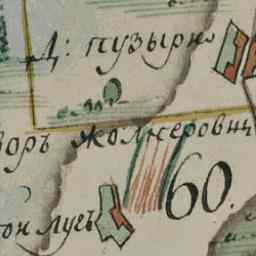 Д: пузыри
воръ жолнерович
60.
он лугъ